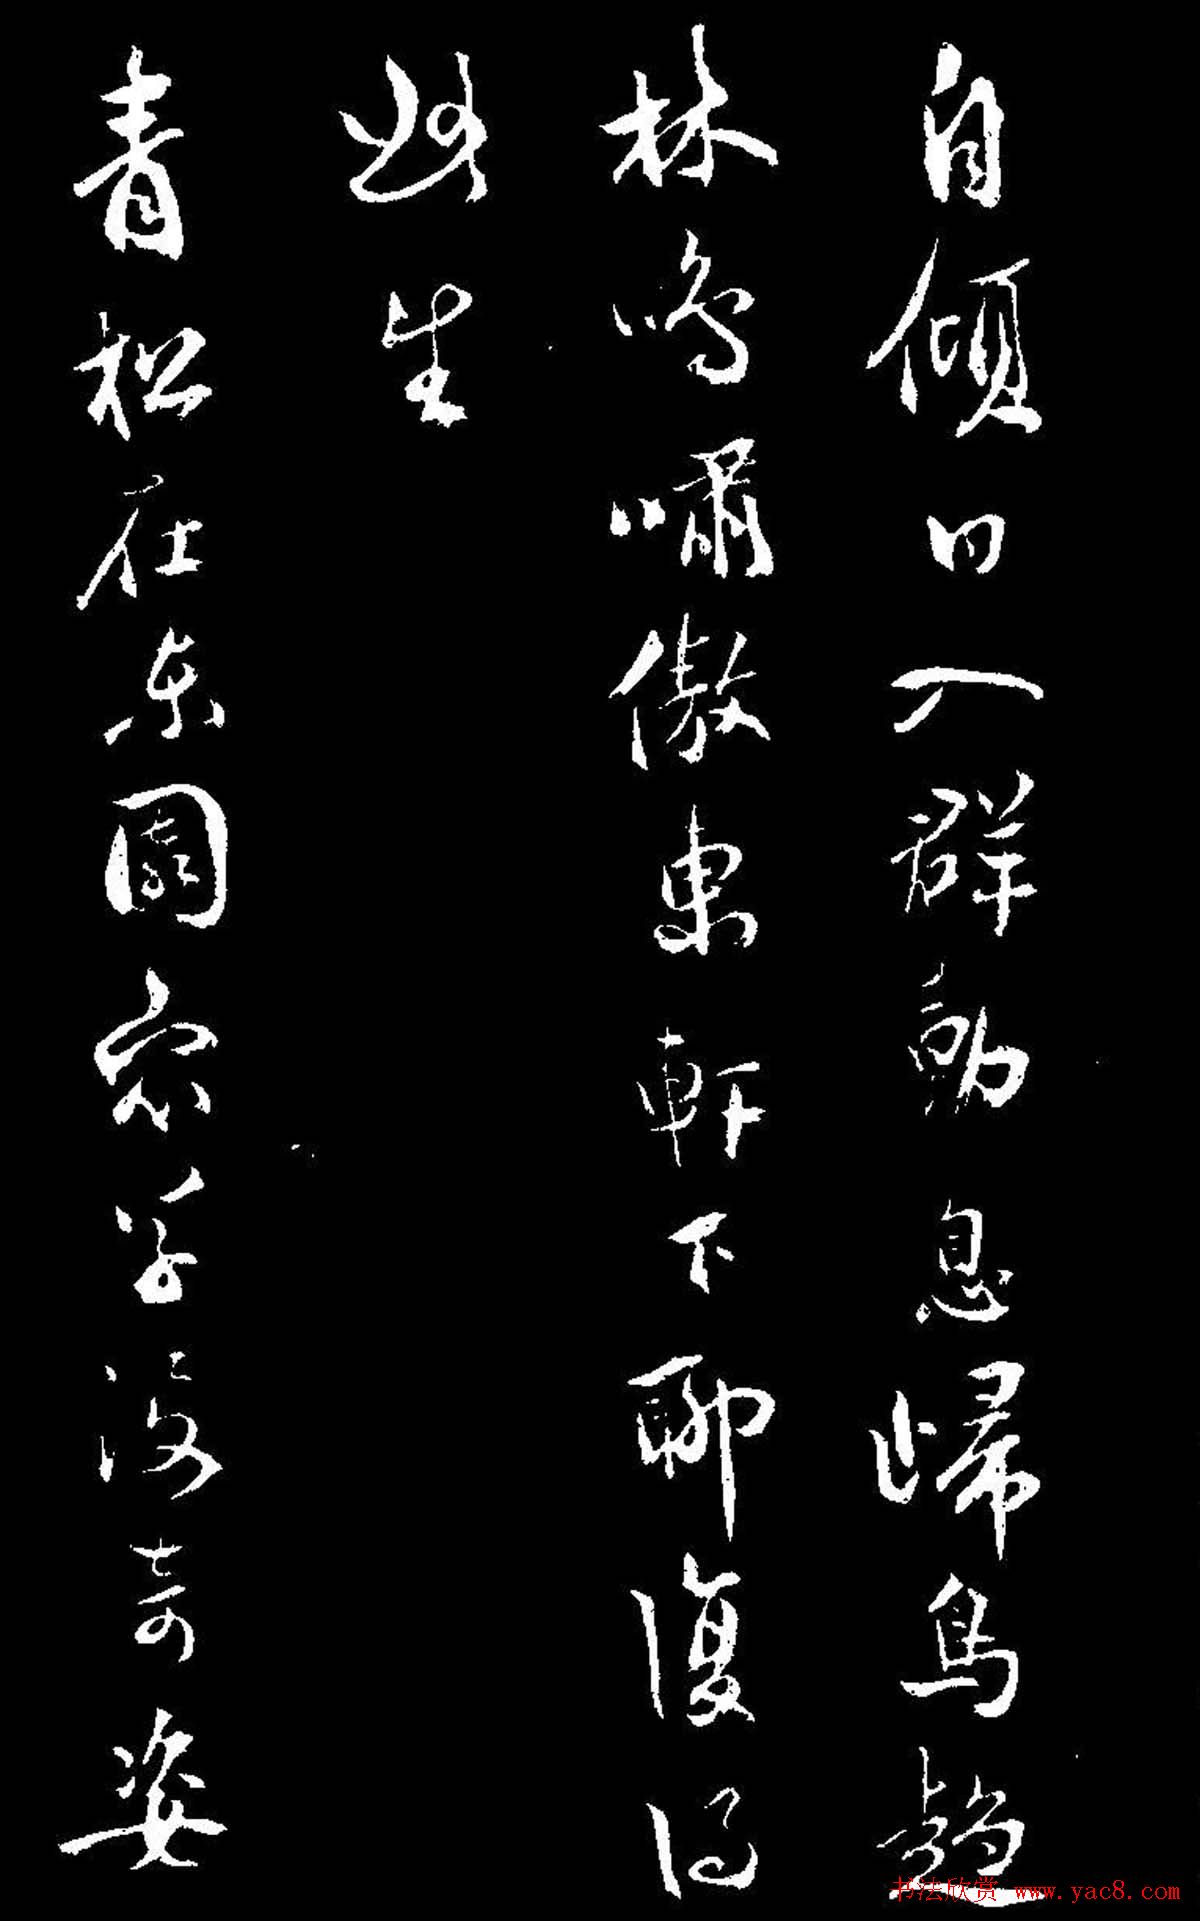 自傾日入群動息歸鳥趨
林鳴嘯傲東軒下聊復得
此生
青松在東園眾草沒奇姿
书法欣赏 www.yac8.com